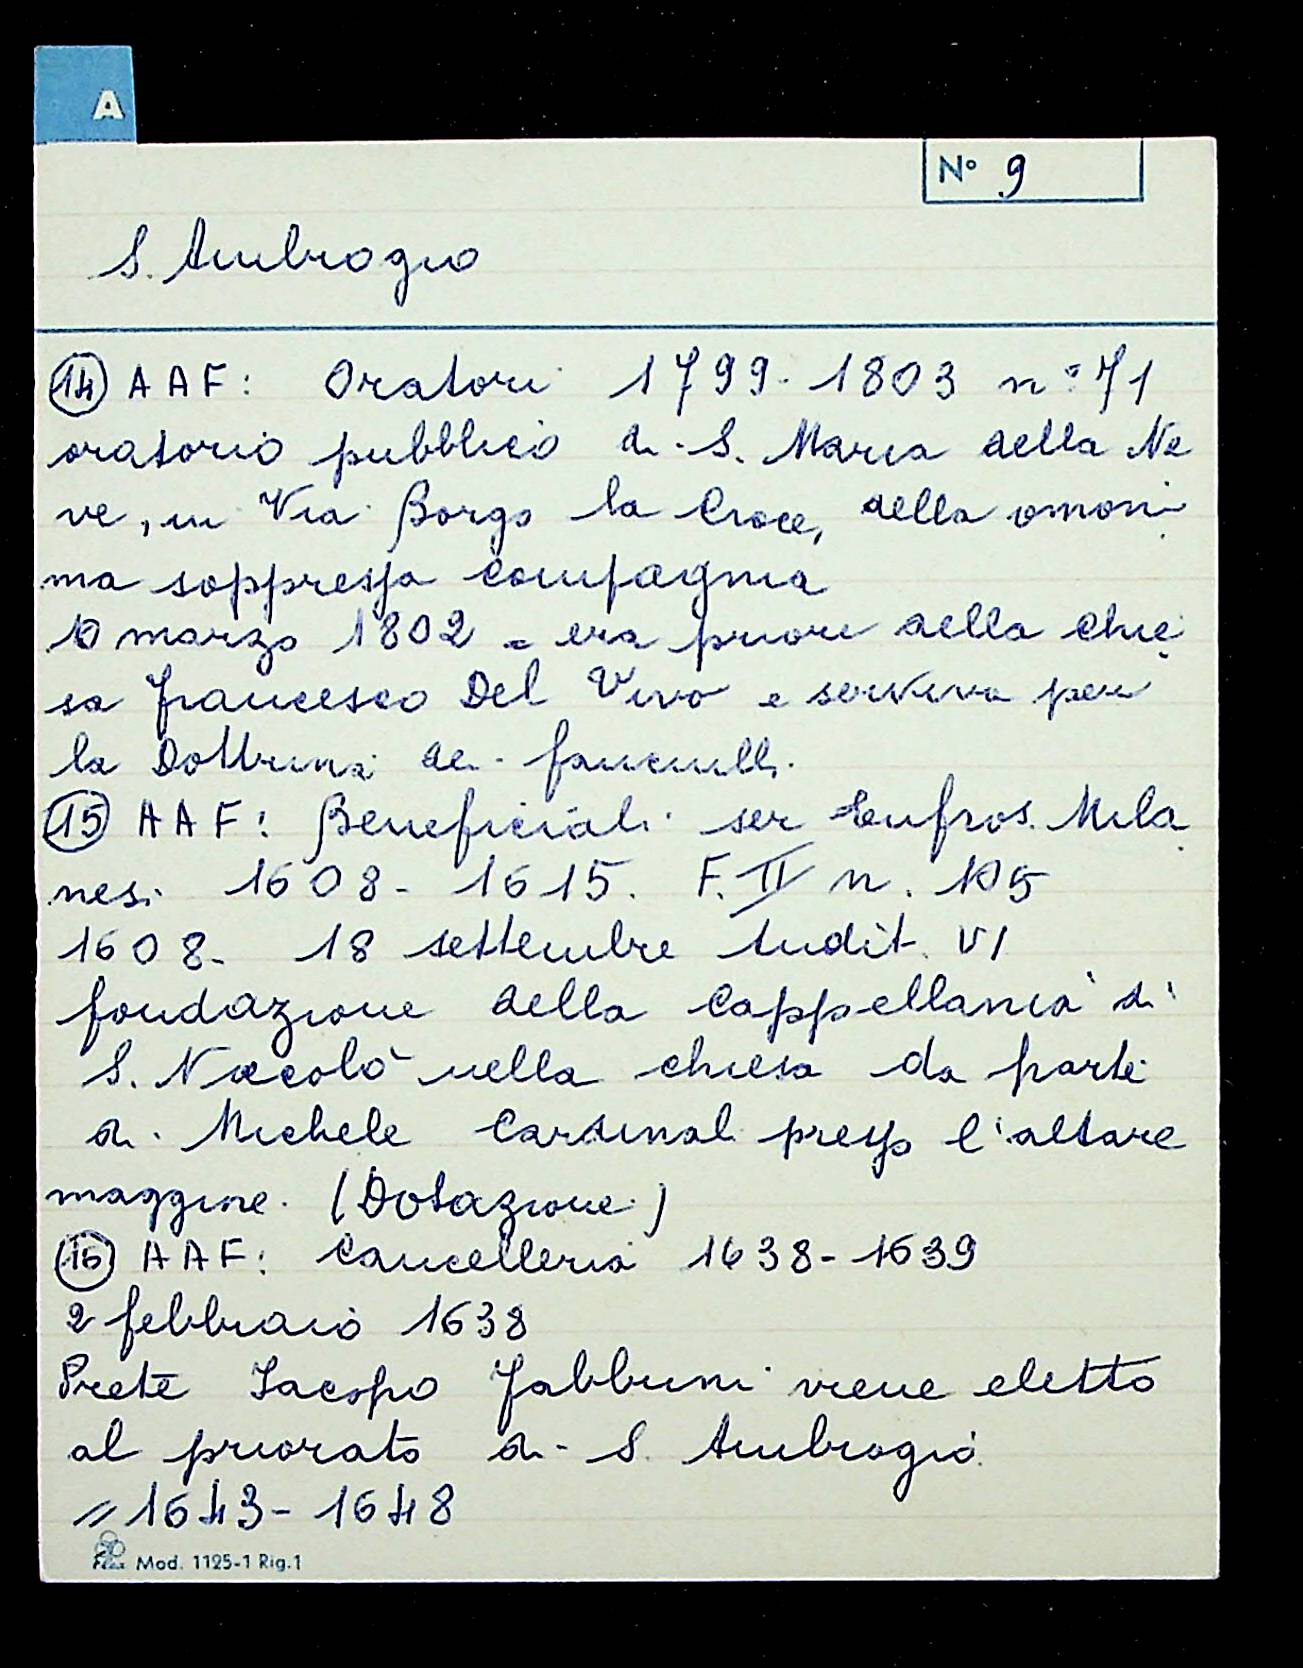 A
N° 9
S. Ambrogio
14 AAF: Oratori 1799-1803 n° 71
oratorio pubblico di S. Maria della Ne
ve, in Via Borgo la Croce, della omoni
ma soppressa compagnia
10 marzo 1802 = era priore della chie
sa Francesco Del Vivo e serviva per
la Dottrina dei fanciulli.
15 AAF: Beneficiali ser Eufros. Mila
nesi 1608-1615. F. II n. 105
1608- 18 settembre Indit. VI
fondazione della Cappellania di
S. Niccolò nella chiesa da parte
di Michele Cardinal presso l'altare
maggiore. (Dotazione)
16 AAF: Cancelleria 1638-1639
2 febbraio 1638
Prete Iacopo Fabbrini viene eletto
al priorato di S. Ambrogio
// 1643-1648
Flex Mod. 1125-1 Rig.1